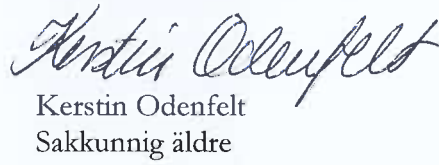 Kerstin Odenfelt
Kerstin Odenfelt
Sakkunnig äldre